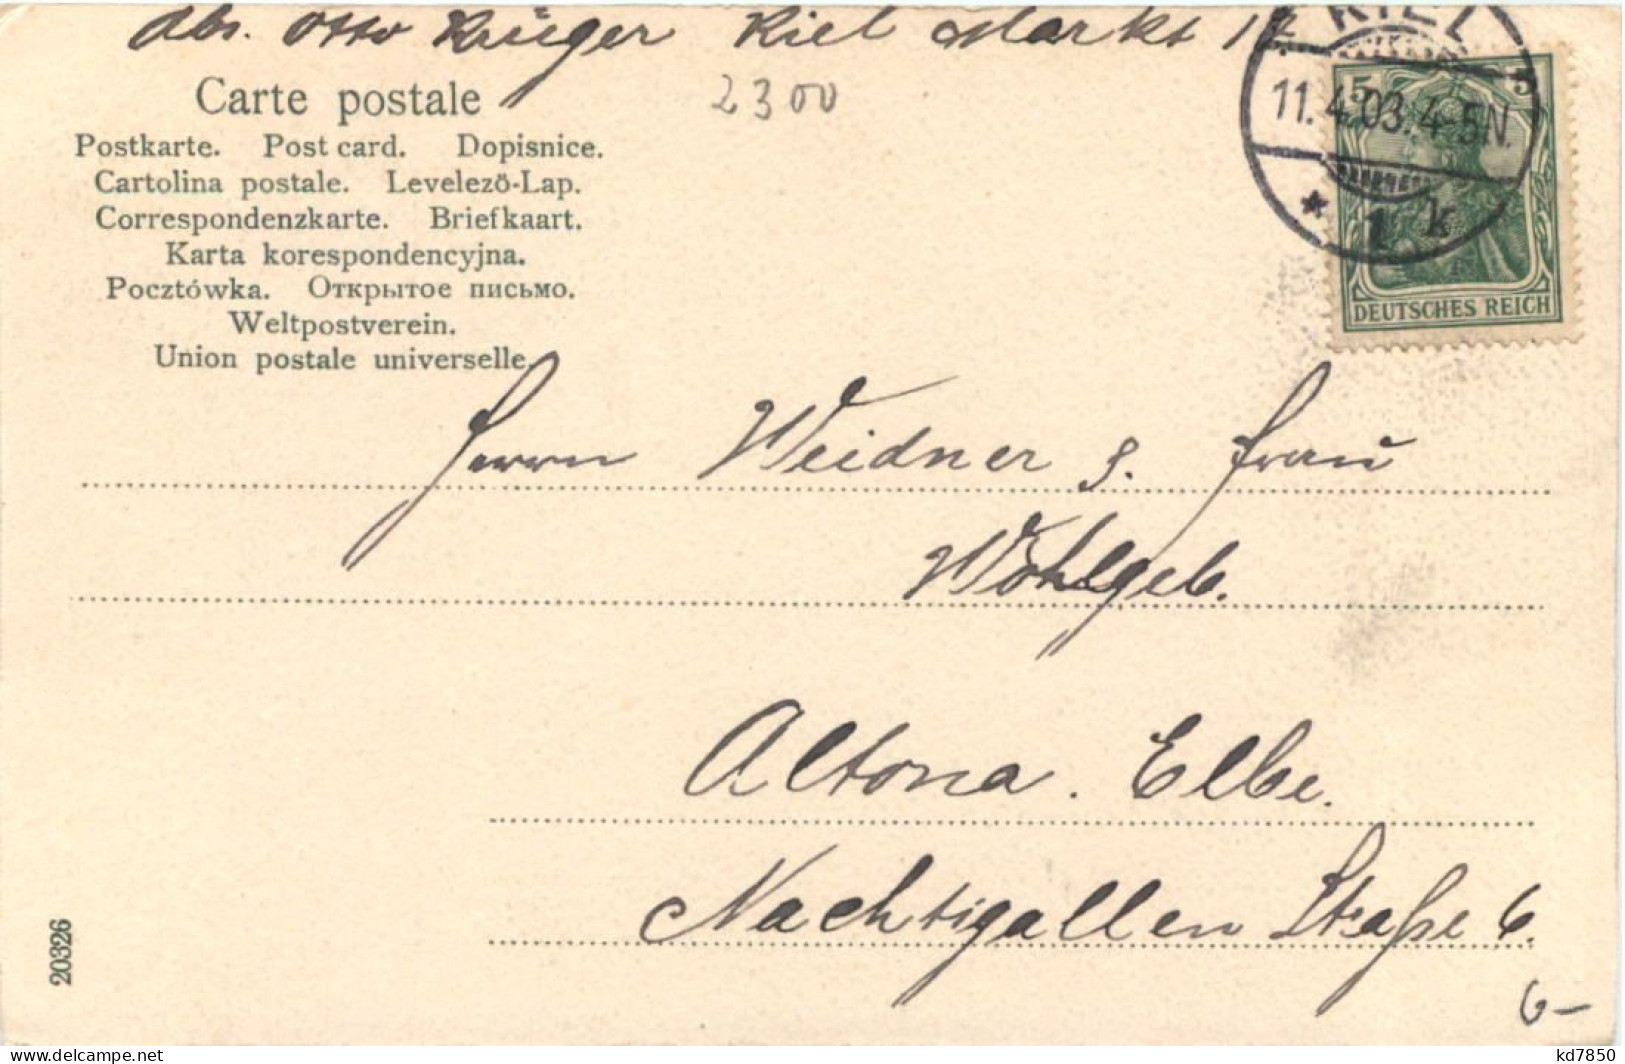 Abs. Otto Krüger Kiel Markt
Carte postale
2300
Postkarte. Post card. Dopisnice.
Cartolina postale. Levelezö-Lap.
Correspondenzkarte. Briefkaart.
Karta korespondencyjna.
Pocztówka. Открытое письмо.
Weltpostverein.
Union postale universelle.
KIEL
11.4.03.4-5N.
* 1 k
5 5
DEUTSCHES REICH
Herrn Weidner & Frau
Wohlgeb.
Altona. Elbe.
Nachtigallen Straße 6.
20326
6-
www.delcampe.net
kd7850